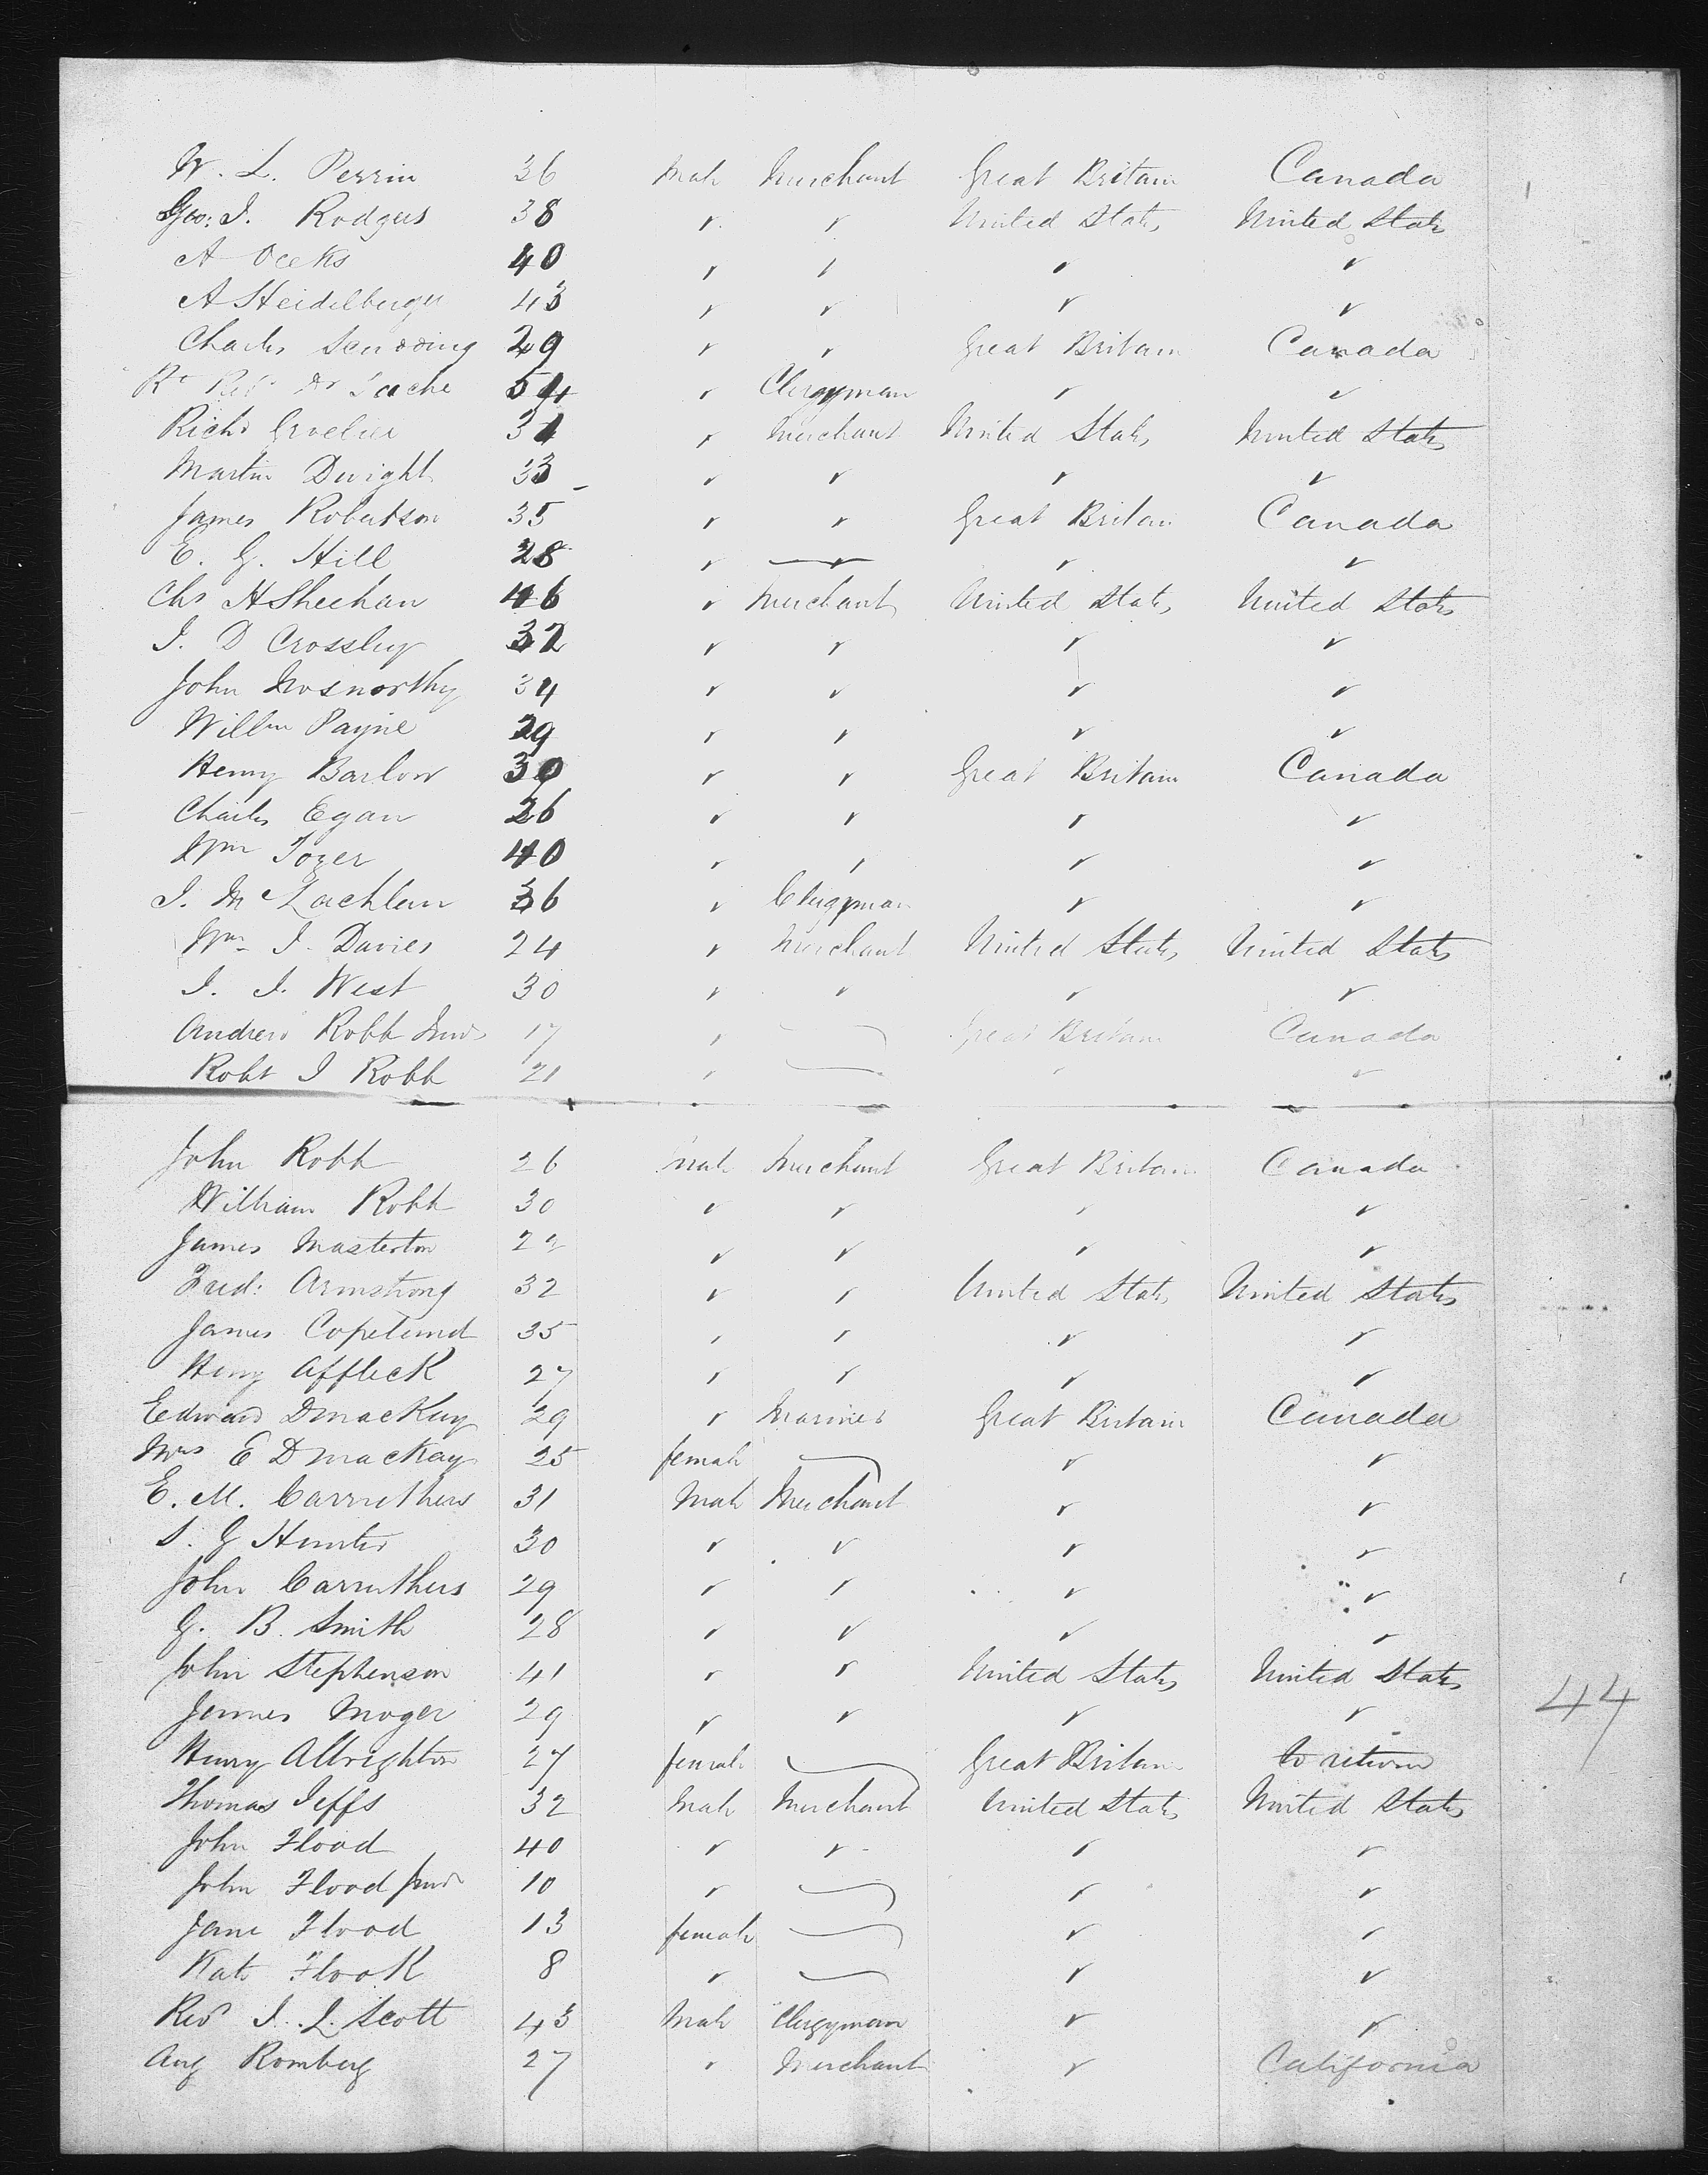 W. L. Perrin 36 Male Merchant Great Britain Canada
Geo: J. Rodgers 38 " " United States United States
A Ocoks 40 " " " "
A Heidelberger 43 " " " "
Charles 29 " " Great Britain Canada
Rt Revd Dr Tache 54 " Clergyman " "
Richd 34 " Merchant United States United States
Martin Dwight 33 " " " "
James Robertson 35 " " Great Britain Canada
E. G. Hill 28 " — " "
Chs H Sheehan 46 " Merchant United States United States
J. D Crossley 32 " " " "
John Nosworthy 34 " " " "
Willm Payne 29 " " " "
Henry Barlow 39 " " Great Britain Canada
Charles Egan 26 " " " "
Wm Tozer 40 " " " "
J. McLachlan 36 " Clergyman " "
Wm J. Davies 24 " Merchant United States United States
J. J. West 30 " " " "
Andrew Robb Junr 17 " — Great Britain Canada
Robt J Robb 21 " — " "
John Robb 26 Male Merchant Great Britain Canada
William Robb 30 " " " "
James Masterton 22 " " " "
Fred: Armstrong 32 " " United States United States
James Copeland 35 " " " "
Henry Affleck 27 " " " "
Edward D MacKay 29 " Mariner Great Britain Canada
Mrs E D MacKay 25 female — " "
E. M. Carruthers 31 Male Merchant " "
S. G Hunter 30 " " " "
John Carruthers 29 " " " "
G. B. Smith 28 " " " "
John Stephenson 41 " " United States United States
James Moger 29 " " " "
44
Henry Albrighton 27 female — Great Britain to return
Thomas Jeffs 32 Male Merchant United States United States
John Flood 40 " " " "
John Flood Junr 10 " — " "
Jane Flood 13 female — " "
Kate Flook 8 " — " "
Revd J. L. Scott 43 Male Clergyman " "
Aug Romberg 27 " Merchant " California